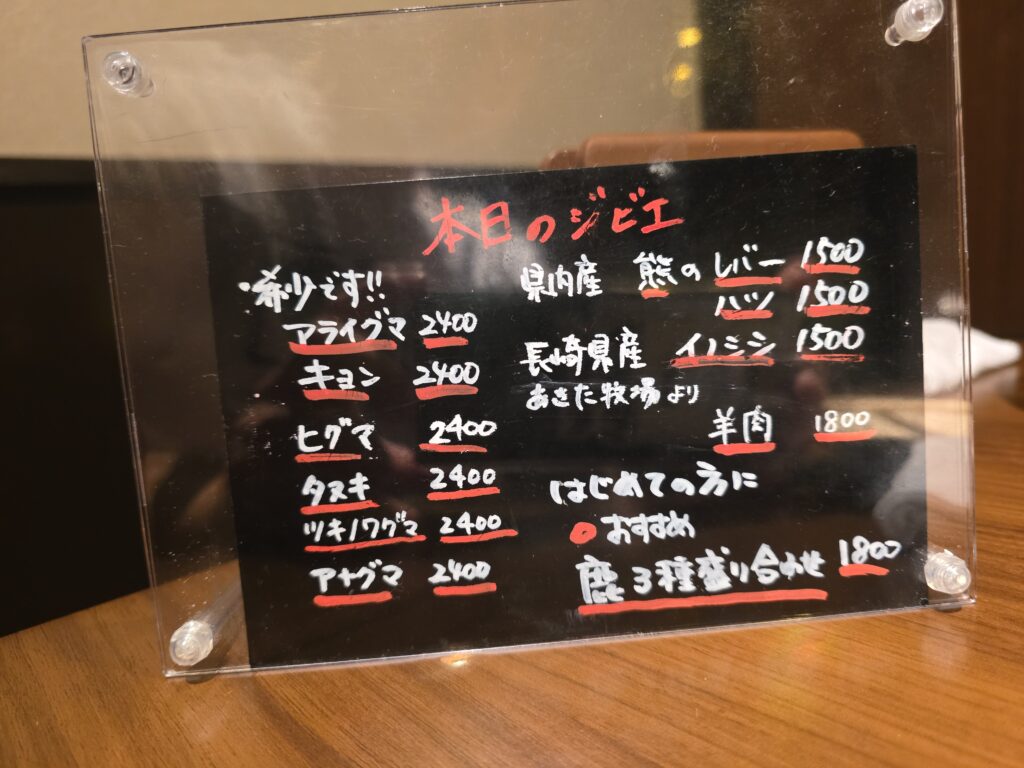 本日のジビエ
・希少です!!
アライグマ 2400
キョン 2400
ヒグマ 2400
タヌキ 2400
ツキノワグマ 2400
アナグマ 2400
県内産 熊の レバー 1500
ハツ 1500
長崎県産 イノシシ 1500
あきた牧場より
羊肉 1800
はじめての方に
おすすめ
鹿3種盛り合わせ 1800